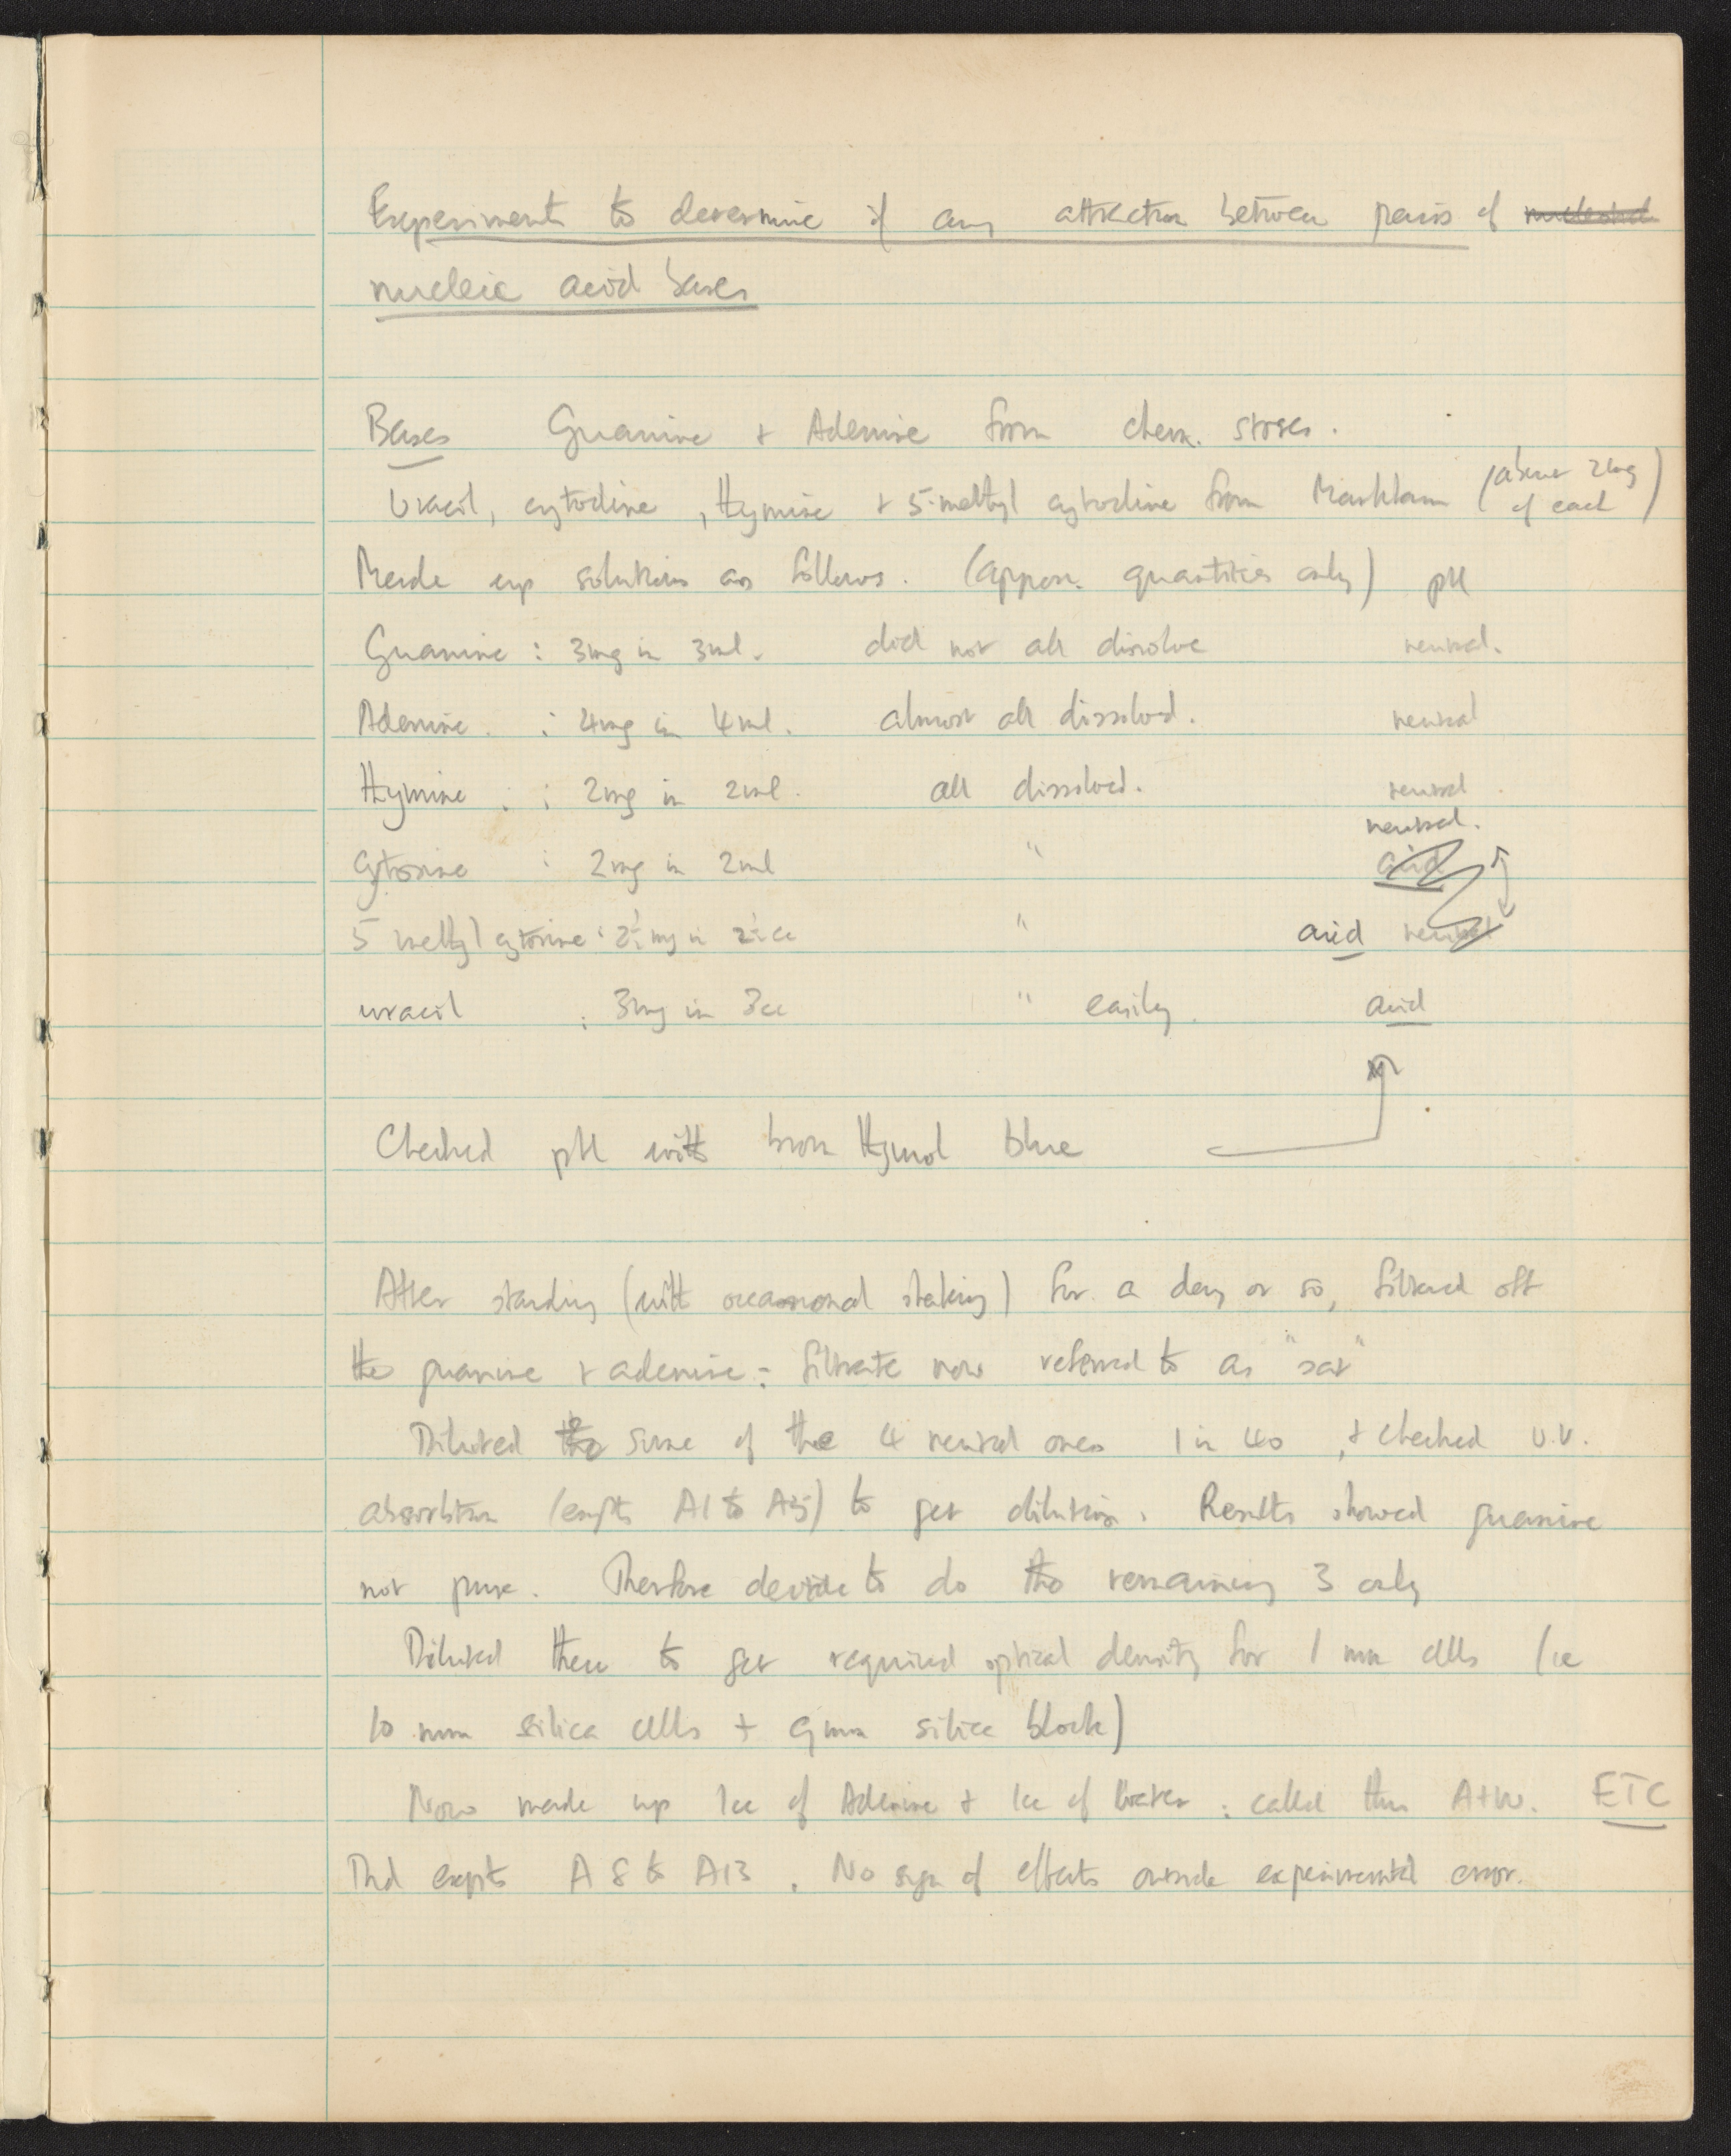 Experiments to determine if any attraction between pairs of
nucleic acid bases
Bases Guanine + Adenine from chem. stores.
Uracil, cytodine, thymine + 5-methyl cytodine from Markham (about 2mg of each)
Made up solutions as follows. (approx. quantities only) pH
Guanine : 3mg in 3ml. did not all dissolve neutral.
Adenine. : 4mg in 4ml. almost all dissolved. neutral
Thymine : : 2mg in 2ml. all dissolved. neutral.
neutral.
Cytosine : 2mg in 2ml " acid
5 methyl cytosine : 2½mg in 2½cc " acid neutral
uracil : 3mg in 3cc " easily. acid
Checked pH with brom thymol blue
After standing (with occasional shaking) for a day or so, filtered off
the guanine + adenine : filtrate now referred to as "sat"
Diluted some of the 4 neutral ones 1 in 40, + checked U.V.
absorbtion (expts A1 to A5) to get dilution. Results showed guanine
not pure. Therefore decide to do the remaining 3 only
Diluted these to get required optical density for 1 mm cells (ie
10 mm silica cells + 9mm silica block)
Now made up 1cc of Adenine + 1cc of Water : called this A+W. ETC
Did expts A8 to A13. No sign of effects outside experimental error.